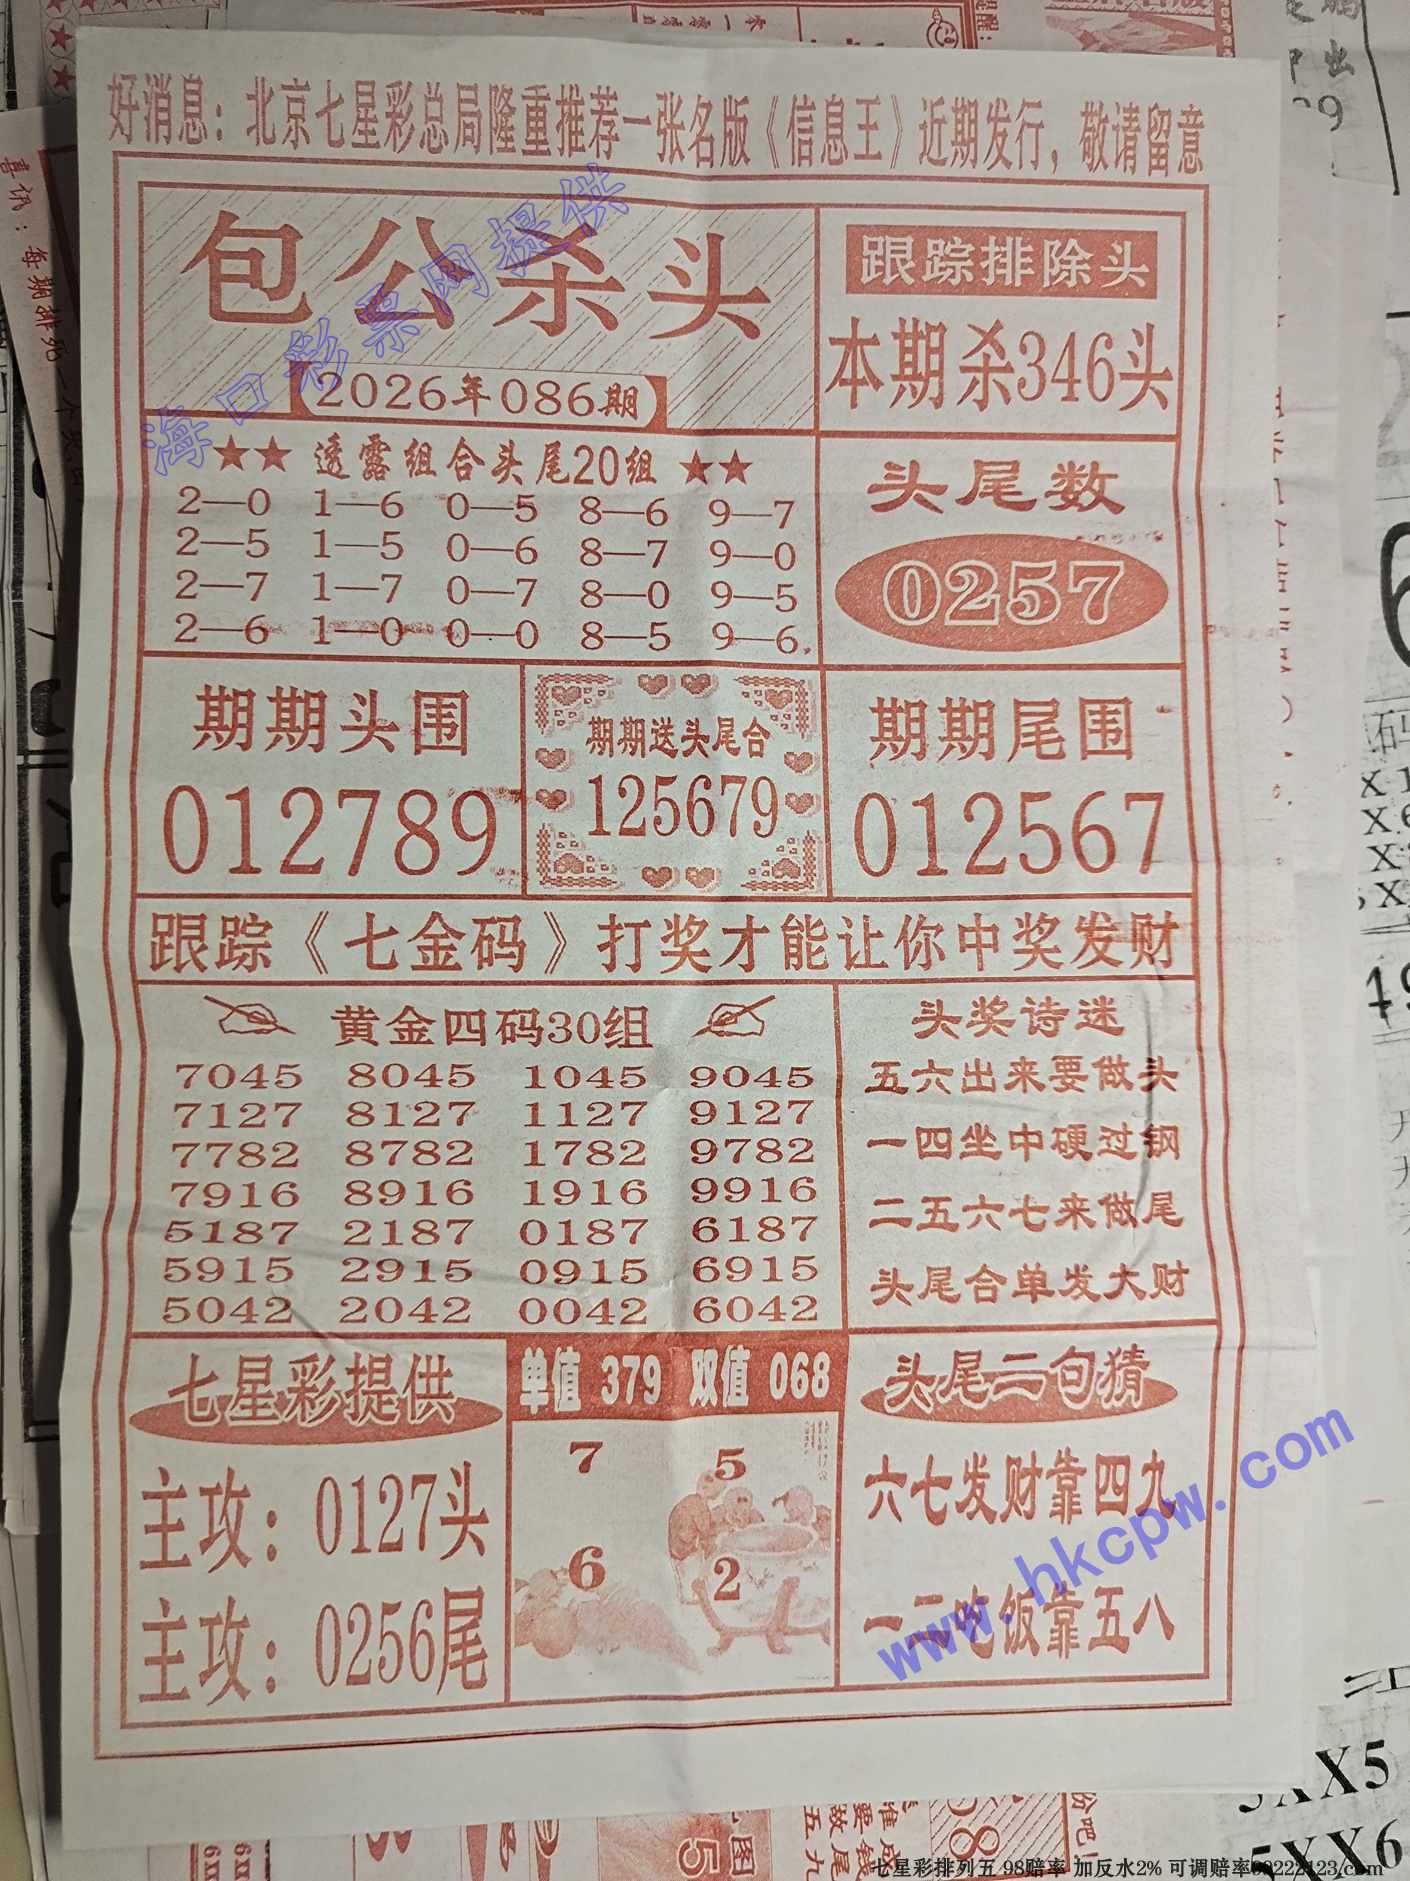 好消息：北京七星彩总局隆重推荐一张名版《信息王》近期发行，敬请留意
包公杀头
2026年086期
跟踪排除头
本期杀346头
★★ 透露组合头尾20组 ★★
2—0 1—6 0—5 8—6 9—7
2—5 1—5 0—6 8—7 9—0
2—7 1—7 0—7 8—0 9—5
2—6 1—0 0—0 8—5 9—6
头尾数
0257
期期头围
012789
期期送头尾合
125679
期期尾围
012567
跟踪《七金码》打奖才能让你中奖发财
黄金四码30组
7045 8045 1045 9045
7127 8127 1127 9127
7782 8782 1782 9782
7916 8916 1916 9916
5187 2187 0187 6187
5915 2915 0915 6915
5042 2042 0042 6042
头奖诗迷
五六出来要做头
一四坐中硬过钢
二五六七来做尾
头尾合单发大财
七星彩提供
主攻：0127头
主攻：0256尾
单值 379 双值 068
7 5
6 2
头尾二句猜
六七发财靠四九
一二吃饭靠五八
海口彩票网提供
www.hkcpw.com
喜讯：每期排死一个
5XX6
七星彩排列五 98赔率 加反水2% 可调赔率